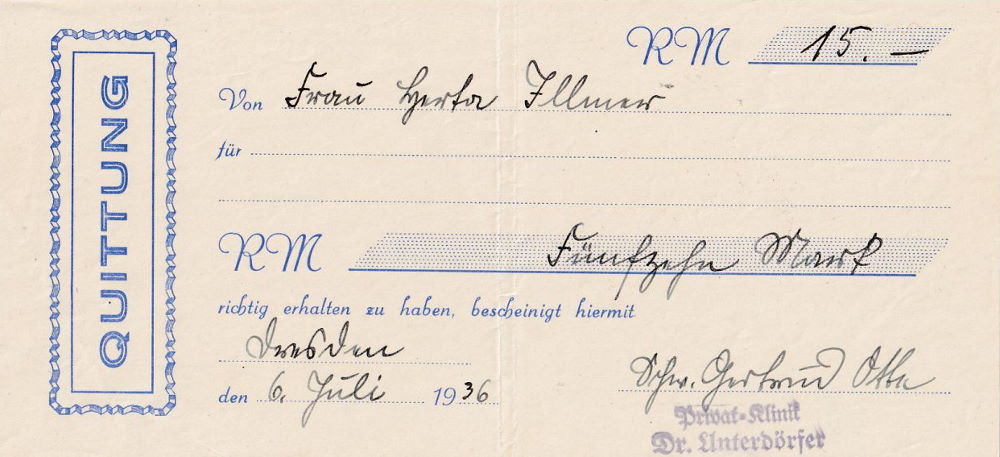 QUITTUNG
RM 15.—
Von Frau Herta Illmer
für
RM Fünfzehn Mark
richtig erhalten zu haben, bescheinigt hiermit
Dresden
den 6. Juli 1936
Schw. Gertrud Otte
Privat-Klinik
Dr. Unterdörfer